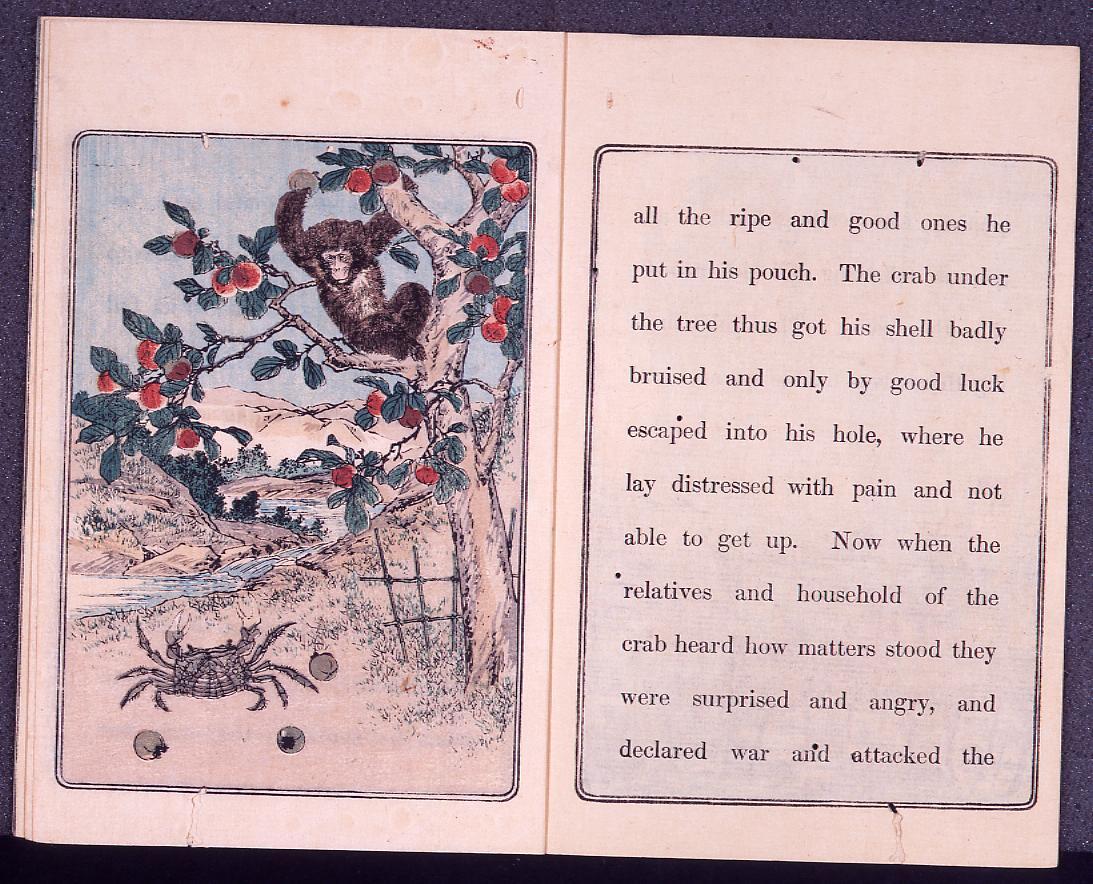 all the ripe and good ones he
put in his pouch. The crab under
the tree thus got his shell badly
bruised and only by good luck
escaped into his hole, where he
lay distressed with pain and not
able to get up. Now when the
relatives and household of the
crab heard how matters stood they
were surprised and angry, and
declared war and attacked the